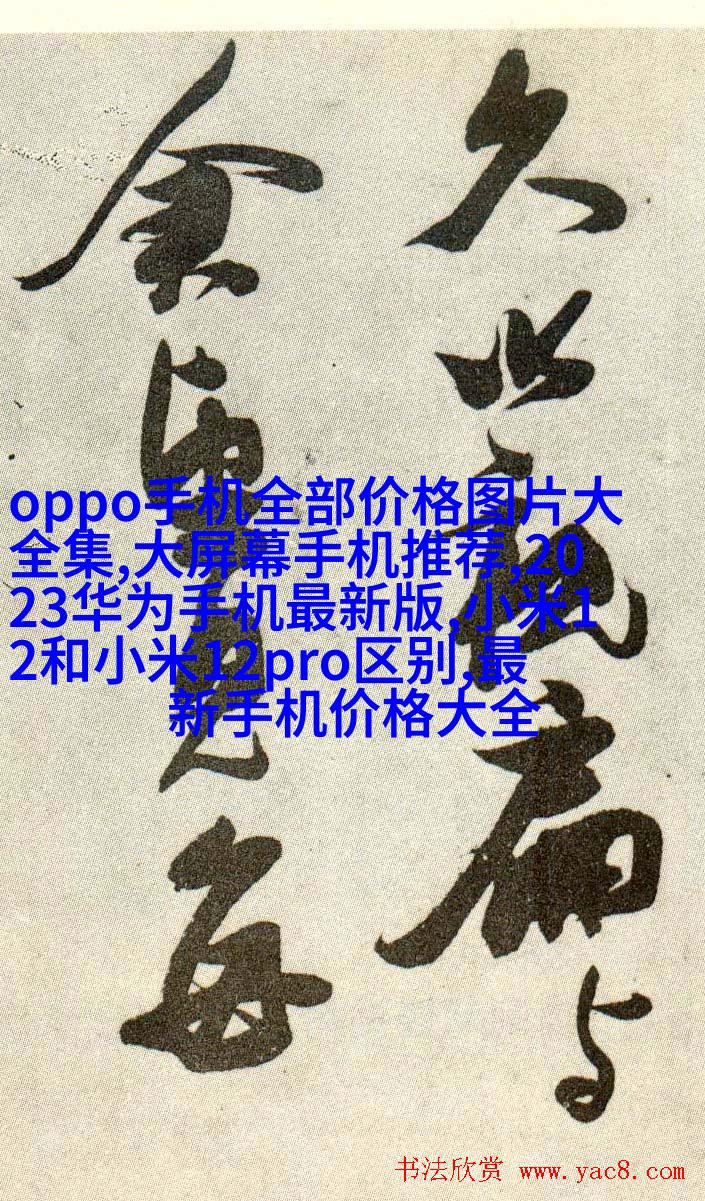 久扁与
余每
oppo手机全部价格图片大
全集,大屏幕手机推荐,20
23华为手机最新版,小米1
2和小米12pro区别,最
新手机价格大全
书法欣赏 www.yac8.com